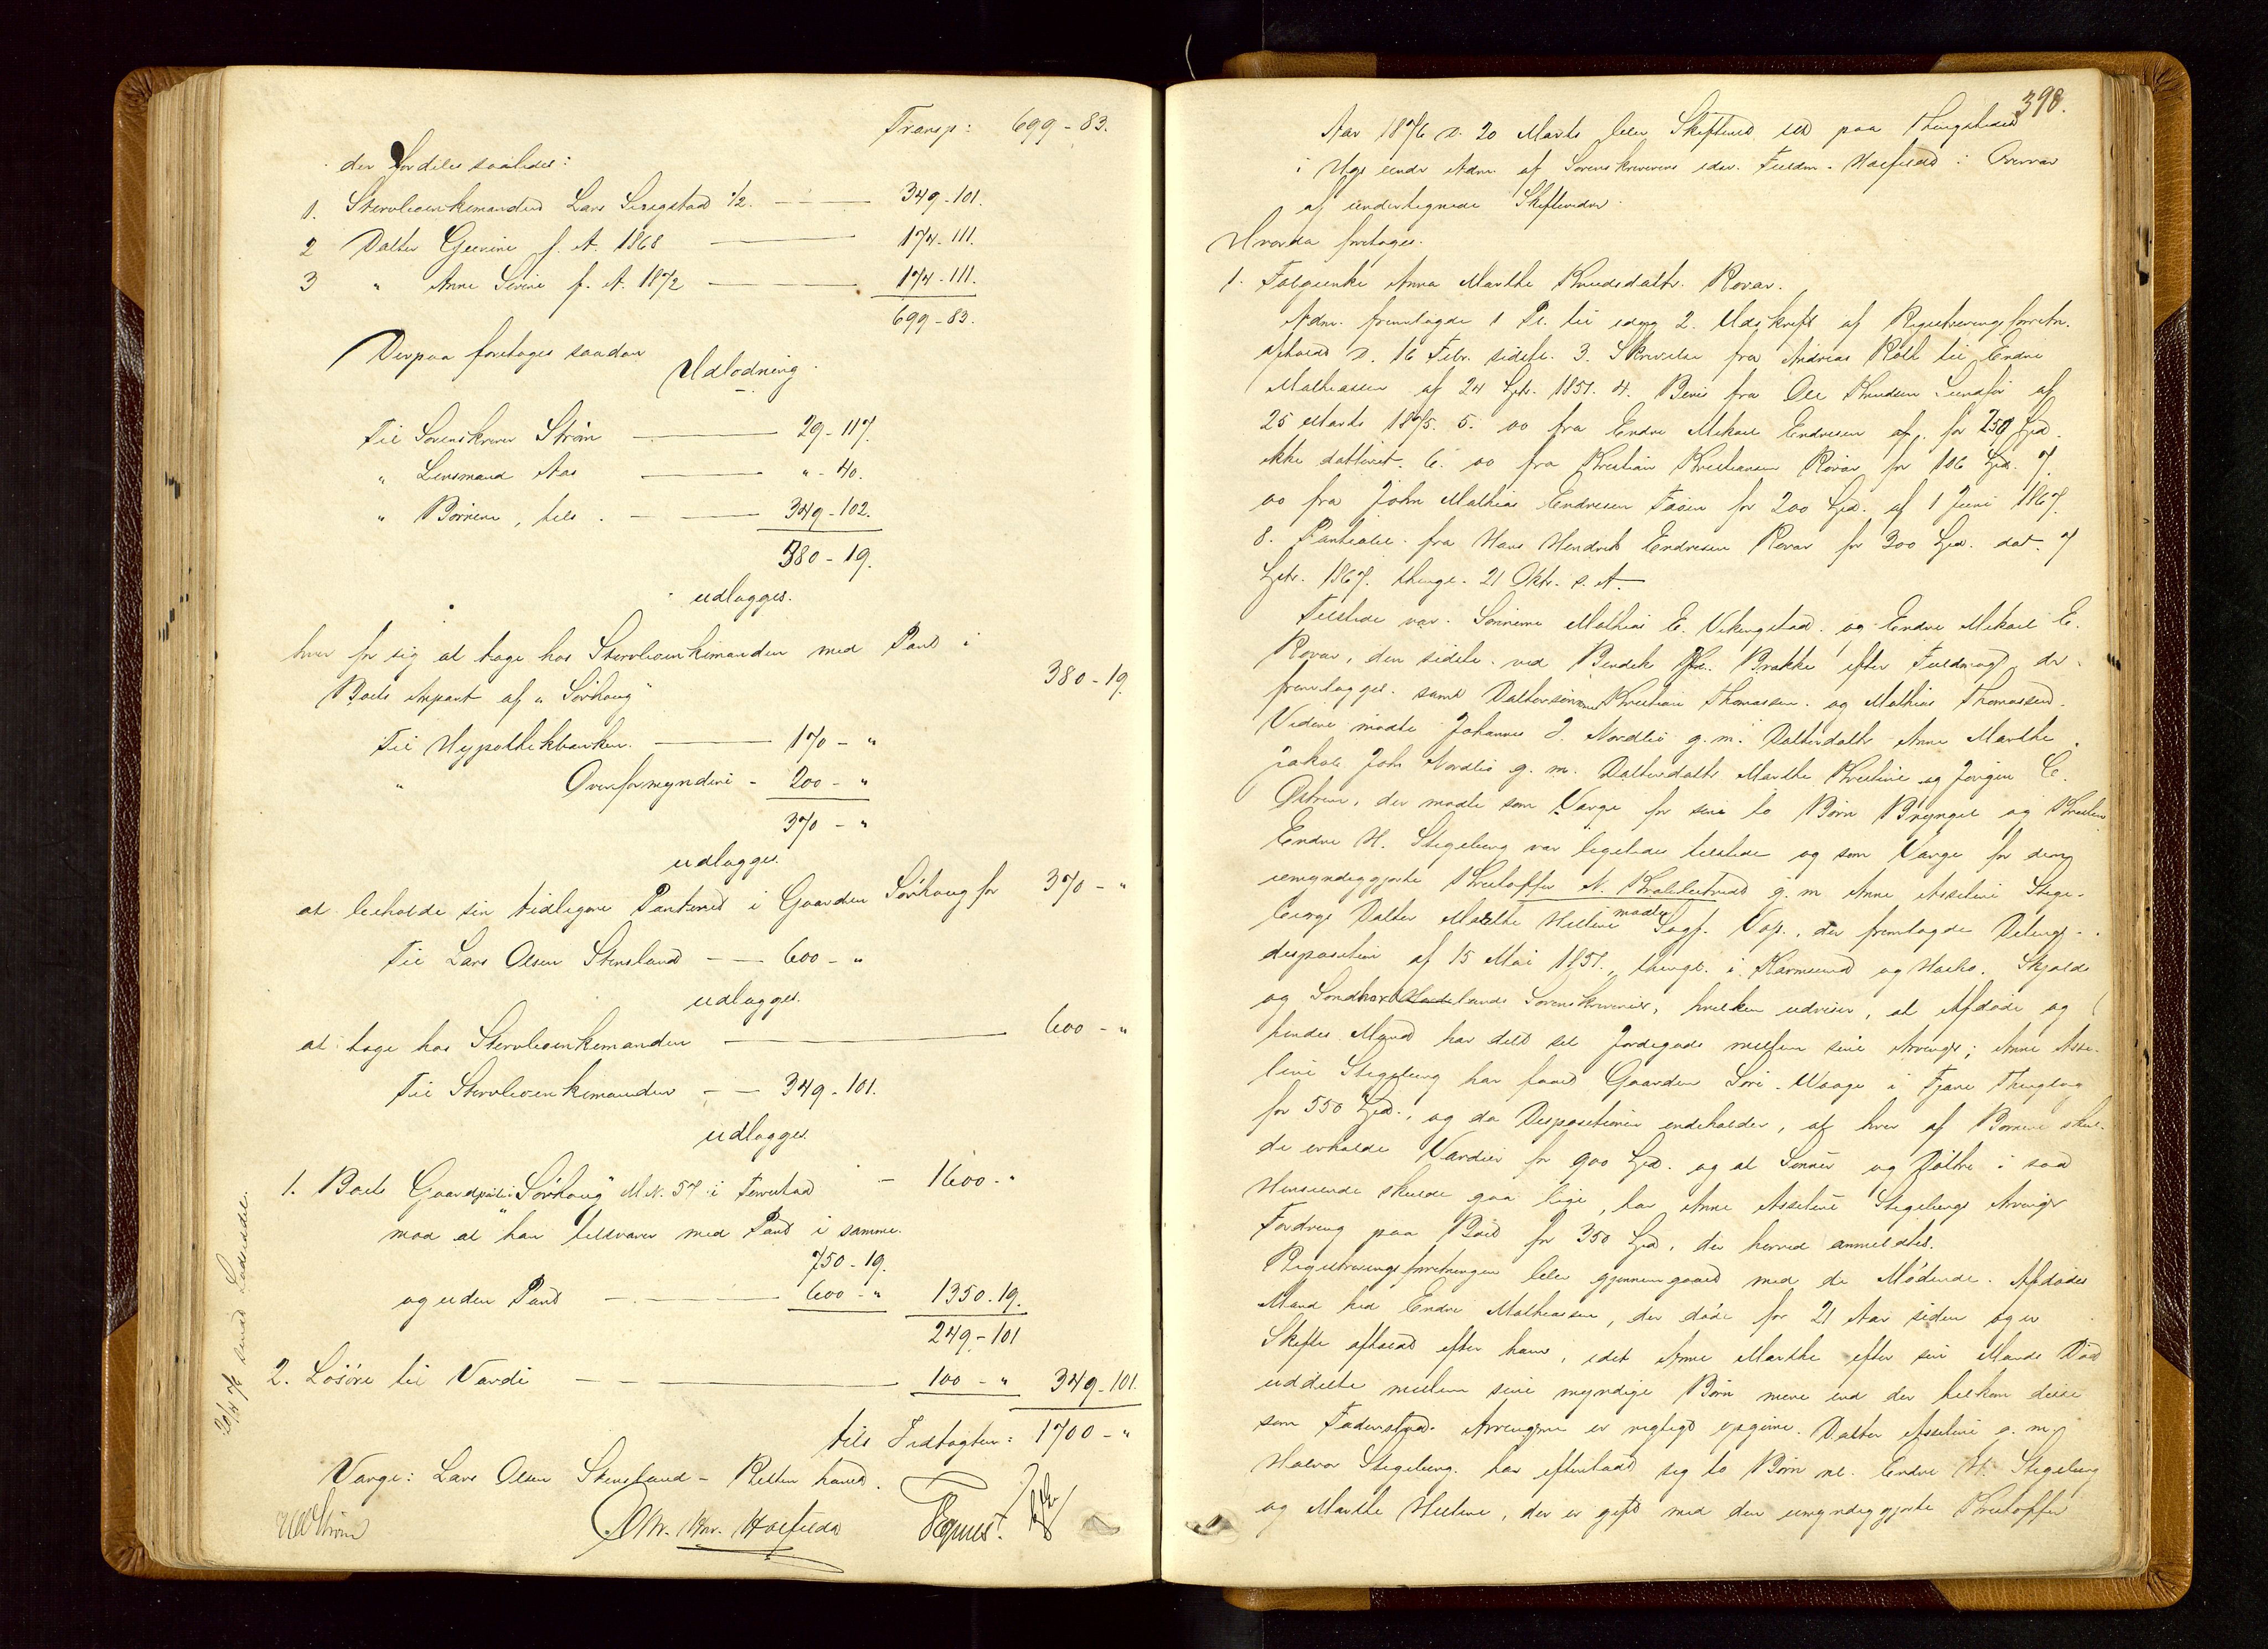 Transp: 699 - 83.
der fordeles saaledes:
1. Stervboenkemanden Lars 1/2. 349 - 101.
2 Datter f. A. 1868 174 - 111.
3 " Anne Serine f. A. 1872 174 - 111.
699 - 83.
Derpaa foretages saadan
Udlodning.
Til Sorenskriver Strøm 29 - 117.
" Lensmand Aas " - 40.
" Børnene, tils. 349 - 102.
380 - 19.
udlægges.
hver for sig at tage hos Stervboenkemanden med Pant i
Boets Anpart af "Sørhaug" 380 - 19.
Til Hypothekbanken. 170 - "
" Overformynderi - 200 - "
370 - "
udlægges
at beholde sin tidligere Panteret i Gaarden Sørhaug for 370 - "
Til Lars Olsen Stensland 600 - "
udlægges.
at tage hos Stervboenkemanden 600 - "
Til Stervboenkemanden 349 - 101.
udlægges
1. Boets Gaardpart: "Sørhaug" M.N. 57 i - 1600 - "
mod at han tilsvarer med Pant i samme.
750 - 19.
og uden Pant 600 - " 1350 - 19.
249 - 101
2. Løsøre til Værdi 100 - " 349 - 101.
tils Indtægten: 1700 - "
Værge: Lars Olsen Stensland - Retten hævet.
398.
Aar 1876 D. 20 Marts blev Skifteret sat paa Thingstedet
i under Adm. af Sorenskriverens edsv. Fuldm. i Overvær
af undertegnede Skiftevidner.
Hvorda foretoges.
1. Folgeenke Anna Marthe Knudsdatter Røvær.
Adm. fremlagde 1 Pr. til idag 2. Udskrift af Registreringsforretn.
afholdt D. 16 Febr. sidstl. 3. Skrivelse fra Andreas til Endre
Mathiassen af 24 1857. 4. Bevis fra Ole Knudsen af
25 Marts 1875. 5. do fra Endre Mikael Endresen for 250 Spd.
ikke datteret. 6. do fra Kristian Kristiansen Røvær for 106 Spd. 7.
do fra John Mathias Endresen for 200 Spd. af 1 Juni 1867.
8. Panteobl. fra Hans Hendrik Endresen Røvær for 300 Spd. dat. 7
1867. thingl. 21 Oktr. s. A.
Tilstede var. Sønnerne Mathias E. Vikingstad. og Endre Mikael E.
Røvær, den sidste. ved Bendik Brække efter Fuldmagt der
fremlægges. samt Dattersønnerne Kristian Thomassen. og Mathias Thomassen.
Videre mødte Johannes J. Nordbø g. m. Datterdatter Anne Marthe
Jakob Joh. Nordbø g. m. Datterdatter Marthe Kristine og Jørgen C.
der mødte som Værge for sine to Børn Bryngel og
Endre H. Stegeberg var ligeledes tilstede og som Værge for den
umyndiggjorte Kristoffer N. g. m Anne Asseline Stege-
bergs Datter Marthe Helene mødte Sagf. der fremlagde Delings-
disposition af 15 Mai 1857, thingl. i Karmsund og
og Sorenskriverier, hvilken udviser, at Afdøde og
hendes Mand har delt sit Jordegods mellem sine Arvinger; Anne Asse-
line Stegeberg har faaet Gaarden Søre-Waage i Thinglag
for 550 Spd., og da Dispositionen indeholder, at hver af Børnene skul-
de erholde Værdier for 900 Spd. og at Sønner og Døttre i saa
Henseende skulde gaa lige, har Anne Asseline Stegebergs Arvinger
Fordring paa Boet for 350 Spd, der herved anmeldtes.
Registreringsforretningen blev gjennemgaaet med de Mødende. Afdødes
Mand hed Endre Mathiassen, der døde for 21 Aar siden og er
Skifte afholdt efter ham, idet Anne Marthe efter sin Mands Død
uddelte mellem sine myndige Børn mere end der tilkom disse
som Arvingerne er rigtigt opgivne. Datter Asseline g. m.
Halvor Stegeberg. har efterladt sig to Børn nl. Endre H. Stegeberg
og Marthe Helene, der er gift med den umyndiggjorte Kristoffer